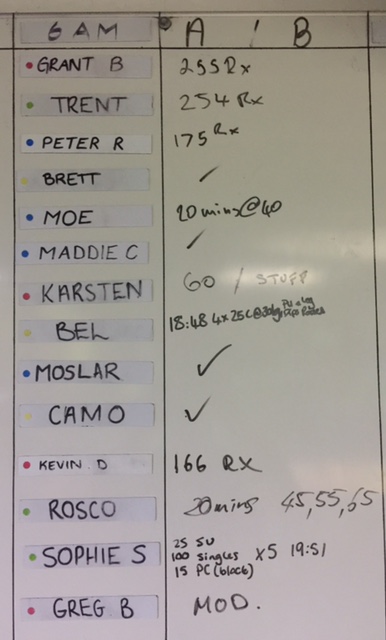 6 AM A / B
GRANT B 255 Rx
TRENT 254 Rx
PETER R 175 Rx
BRETT ✓
MOE 20 mins@40
MADDIE C ✓
KARSTEN 60 / STUFF
BEL 18:48 4x25C@30kg
MOSLAR ✓
CAMO ✓
KEVIN D 166 RX
ROSCO 20mins 45,55,65
SOPHIE S 25 SU
100 singles x5 19:51
15 PC(black)
GREG B MOD.